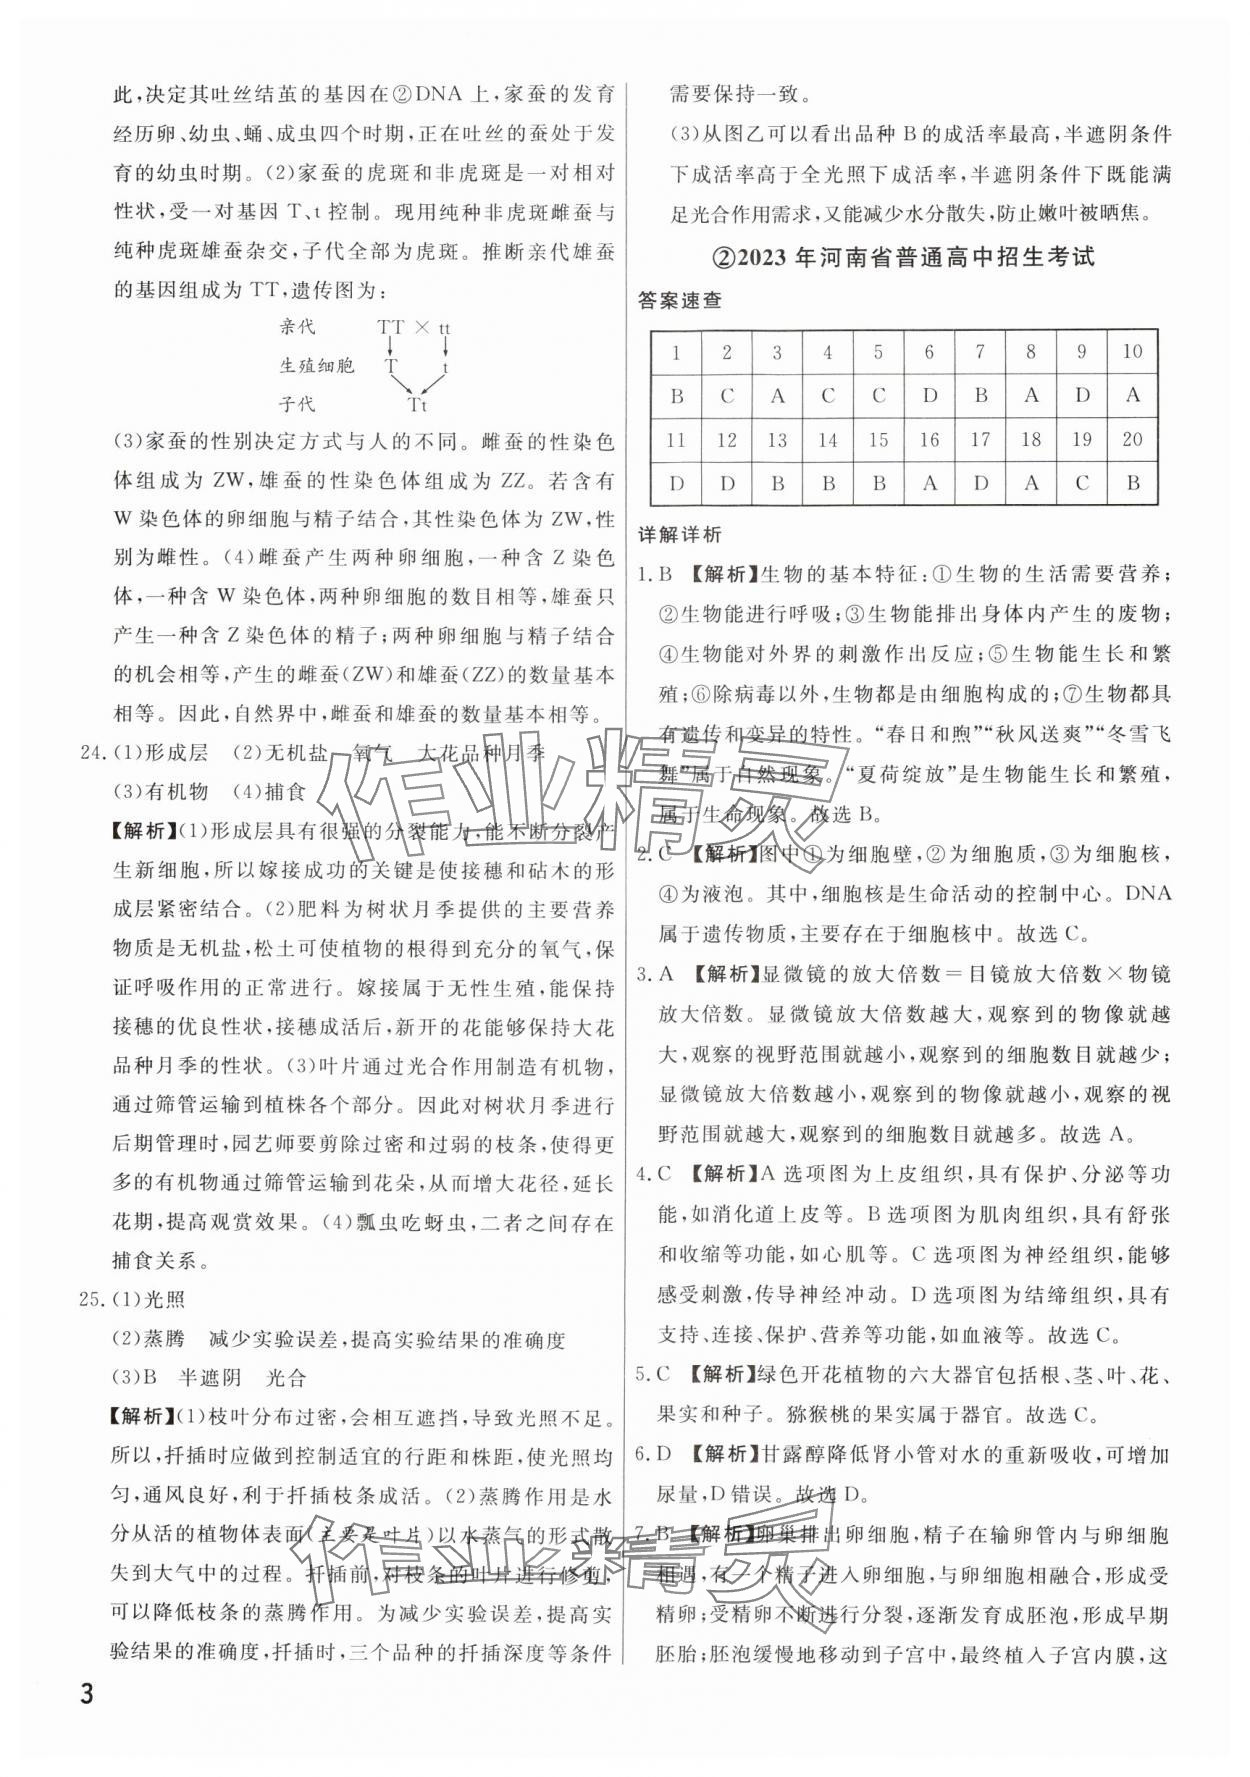 此,决定其吐丝结茧的基因在②DNA上,家蚕的发育
经历卵、幼虫、蛹、成虫四个时期,正在吐丝的蚕处于发
育的幼虫时期。(2)家蚕的虎斑和非虎斑是一对相对
性状,受一对基因 T、t 控制。现用纯种非虎斑雌蚕与
纯种虎斑雄蚕杂交,子代全部为虎斑。推断亲代雄蚕
的基因组成为 TT,遗传图为:
亲代 TT × tt
生殖细胞 T t
子代 Tt
(3)家蚕的性别决定方式与人的不同。雌蚕的性染色
体组成为 ZW,雄蚕的性染色体组成为 ZZ。若含有
W 染色体的卵细胞与精子结合,其性染色体为 ZW,性
别为雌性。(4)雌蚕产生两种卵细胞,一种含 Z 染色
体,一种含 W 染色体,两种卵细胞的数目相等,雄蚕只
产生一种含 Z 染色体的精子;两种卵细胞与精子结合
的机会相等,产生的雌蚕(ZW)和雄蚕(ZZ)的数量基本
相等。因此,自然界中,雌蚕和雄蚕的数量基本相等。
24.(1)形成层 (2)无机盐 氧气 大花品种月季
(3)有机物 (4)捕食
【解析】(1)形成层具有很强的分裂能力,能不断分裂产
生新细胞,所以嫁接成功的关键是使接穗和砧木的形
成层紧密结合。(2)肥料为树状月季提供的主要营养
物质是无机盐,松土可使植物的根得到充分的氧气,保
证呼吸作用的正常进行。嫁接属于无性生殖,能保持
接穗的优良性状,接穗成活后,新开的花能够保持大花
品种月季的性状。(3)叶片通过光合作用制造有机物,
通过筛管运输到植株各个部分。因此对树状月季进行
后期管理时,园艺师要剪除过密和过弱的枝条,使得更
多的有机物通过筛管运输到花朵,从而增大花径,延长
花期,提高观赏效果。(4)瓢虫吃蚜虫,二者之间存在
捕食关系。
25.(1)光照
(2)蒸腾 减少实验误差,提高实验结果的准确度
(3)B 半遮阴 光合
【解析】(1)枝叶分布过密,会相互遮挡,导致光照不足。
所以,扦插时应做到控制适宜的行距和株距,使光照均
匀,通风良好,利于扦插枝条成活。(2)蒸腾作用是水
分从活的植物体表面(主要是叶片)以水蒸气的形式散
失到大气中的过程。扦插前,对枝条的叶片进行修剪,
可以降低枝条的蒸腾作用。为减少实验误差,提高实
验结果的准确度,扦插时,三个品种的扦插深度等条件
3
需要保持一致。
(3)从图乙可以看出品种 B 的成活率最高,半遮阴条件
下成活率高于全光照下成活率,半遮阴条件下既能满
足光合作用需求,又能减少水分散失,防止嫩叶被晒焦。
②2023 年河南省普通高中招生考试
答案速查
1 2 3 4 5 6 7 8 9 10
B C A C C D B A D A
11 12 13 14 15 16 17 18 19 20
D D B B B A D A C B
详解详析
1. B 【解析】生物的基本特征:①生物的生活需要营养;
②生物能进行呼吸;③生物能排出身体内产生的废物;
④生物能对外界的刺激作出反应;⑤生物能生长和繁
殖;⑥除病毒以外,生物都是由细胞构成的;⑦生物都具
有遗传和变异的特性。“春日和煦”“秋风送爽”“冬雪飞
舞”属于自然现象。“夏荷绽放”是生物能生长和繁殖,
属于生命现象。故选 B。
2. C 【解析】图中①为细胞壁,②为细胞质,③为细胞核,
④为液泡。其中,细胞核是生命活动的控制中心。DNA
属于遗传物质,主要存在于细胞核中。故选 C。
3. A 【解析】显微镜的放大倍数=目镜放大倍数×物镜
放大倍数。显微镜放大倍数越大,观察到的物像就越
大,观察的视野范围就越小,观察到的细胞数目就越少;
显微镜放大倍数越小,观察到的物像就越小,观察的视
野范围就越大,观察到的细胞数目就越多。故选 A。
4. C 【解析】A 选项图为上皮组织,具有保护、分泌等功
能,如消化道上皮等。B 选项图为肌肉组织,具有舒张
和收缩等功能,如心肌等。C 选项图为神经组织,能够
感受刺激,传导神经冲动。D 选项图为结缔组织,具有
支持、连接、保护、营养等功能,如血液等。故选 C。
5. C 【解析】绿色开花植物的六大器官包括根、茎、叶、花、
果实和种子。猕猴桃的果实属于器官。故选 C。
6. D 【解析】甘露醇降低肾小管对水的重新吸收,可增加
尿量,D 错误。故选 D。
7. B 【解析】卵巢排出卵细胞,精子在输卵管内与卵细胞
相遇,有一个精子进入卵细胞,与卵细胞相融合,形成受
精卵;受精卵不断进行分裂,逐渐发育成胚泡,形成早期
胚胎;胚泡缓慢地移动到子宫中,最终植入子宫内膜,这
作业精灵
作业精灵